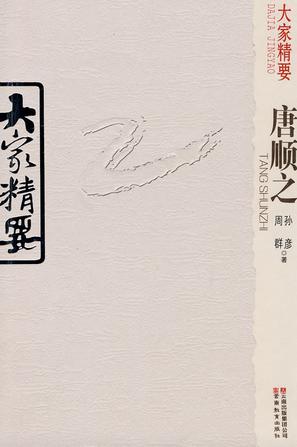 大家精要
DAJIA JINGYAO
唐顺之
TANG SHUNZHI
孙彦
周群
◎著
云南出版集团公司
云南教育出版社
大家精要